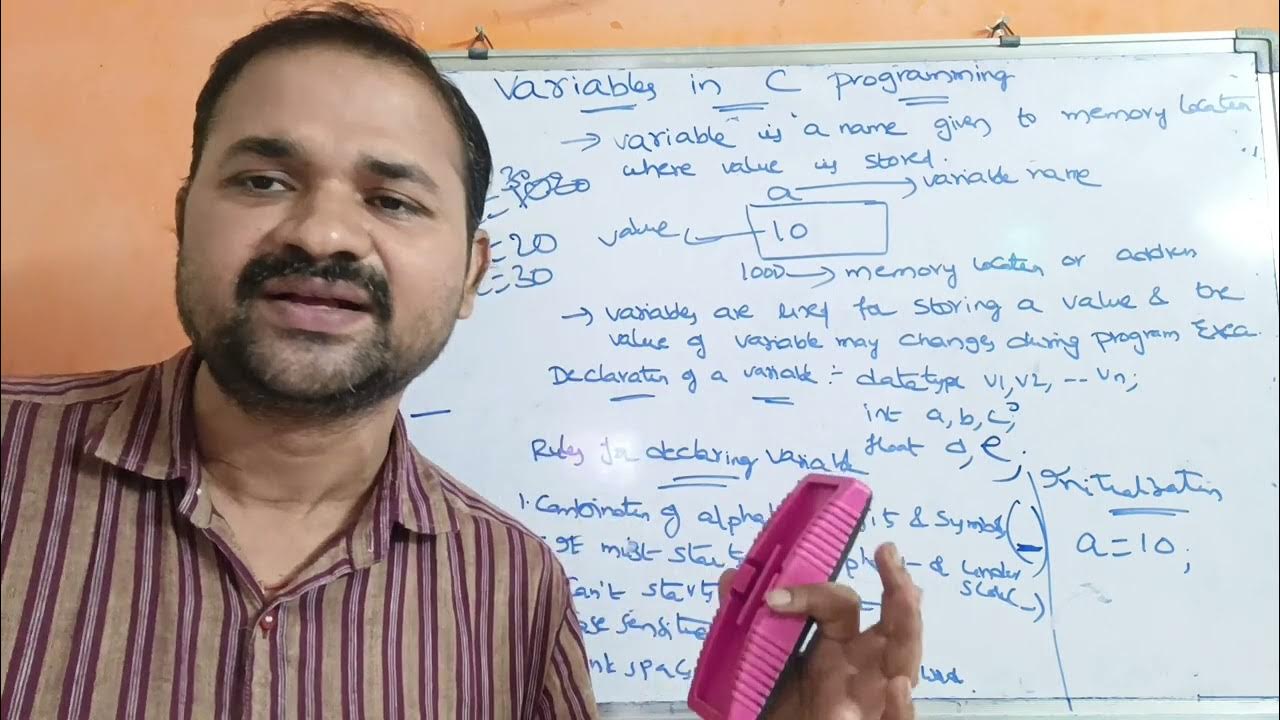 Variables in C programming
→ variable is a name given to memory location
where value is stored.
a → variable name
30
1020
value 10
= 20
= 30
1000 → memory location or address
→ variables are used for storing a value & the
value of variable may changes during program Exea.
Declaration of a variable :- datatype v1, v2, -- vn;
int a, b, c;
float d, e;
Rules for declaring variable
Initialization
1. Combination of alpha & symbols (_)
a = 10;
It must start & under
score(_)
Can't start
sensitive
spac